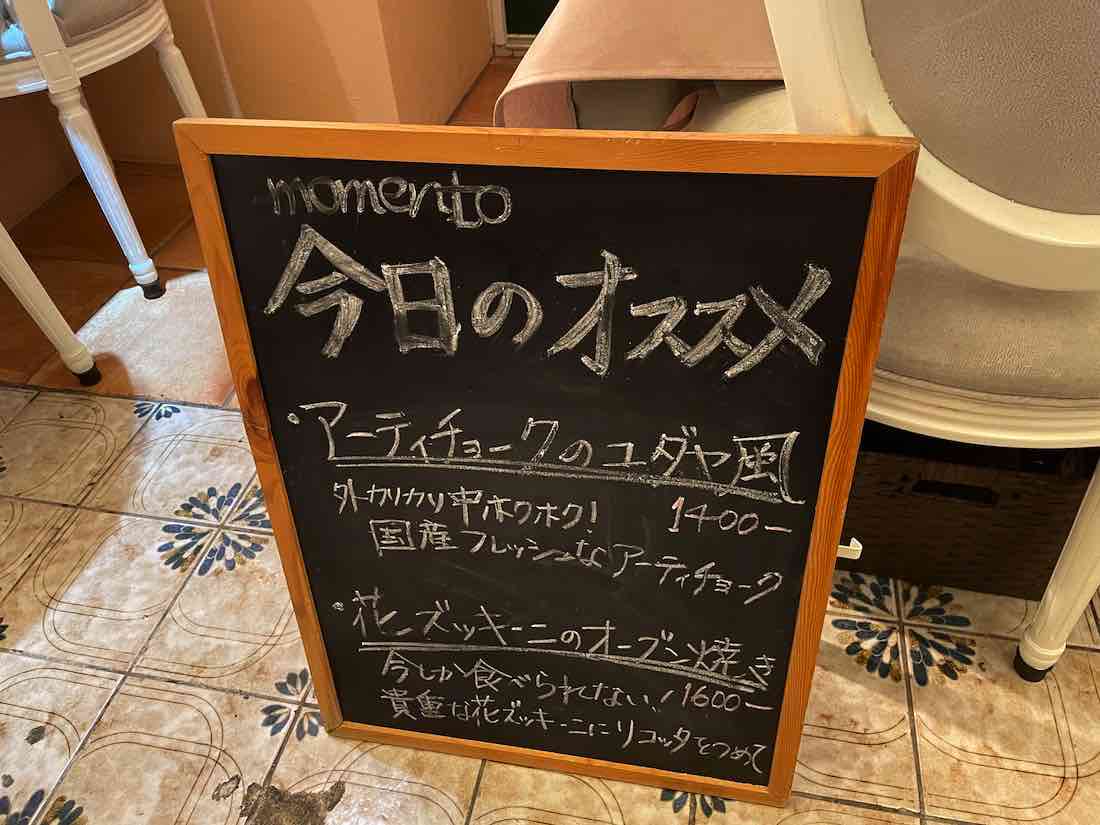 momento
今日のオススメ
・アーティチョークのユダヤ風
外カリカリ中ホクホク! 1400-
国産フレッシュなアーティチョーク
・花ズッキーニのオーブン焼き
今しか食べられない! 1600-
貴重な花ズッキーニにリコッタをつめて